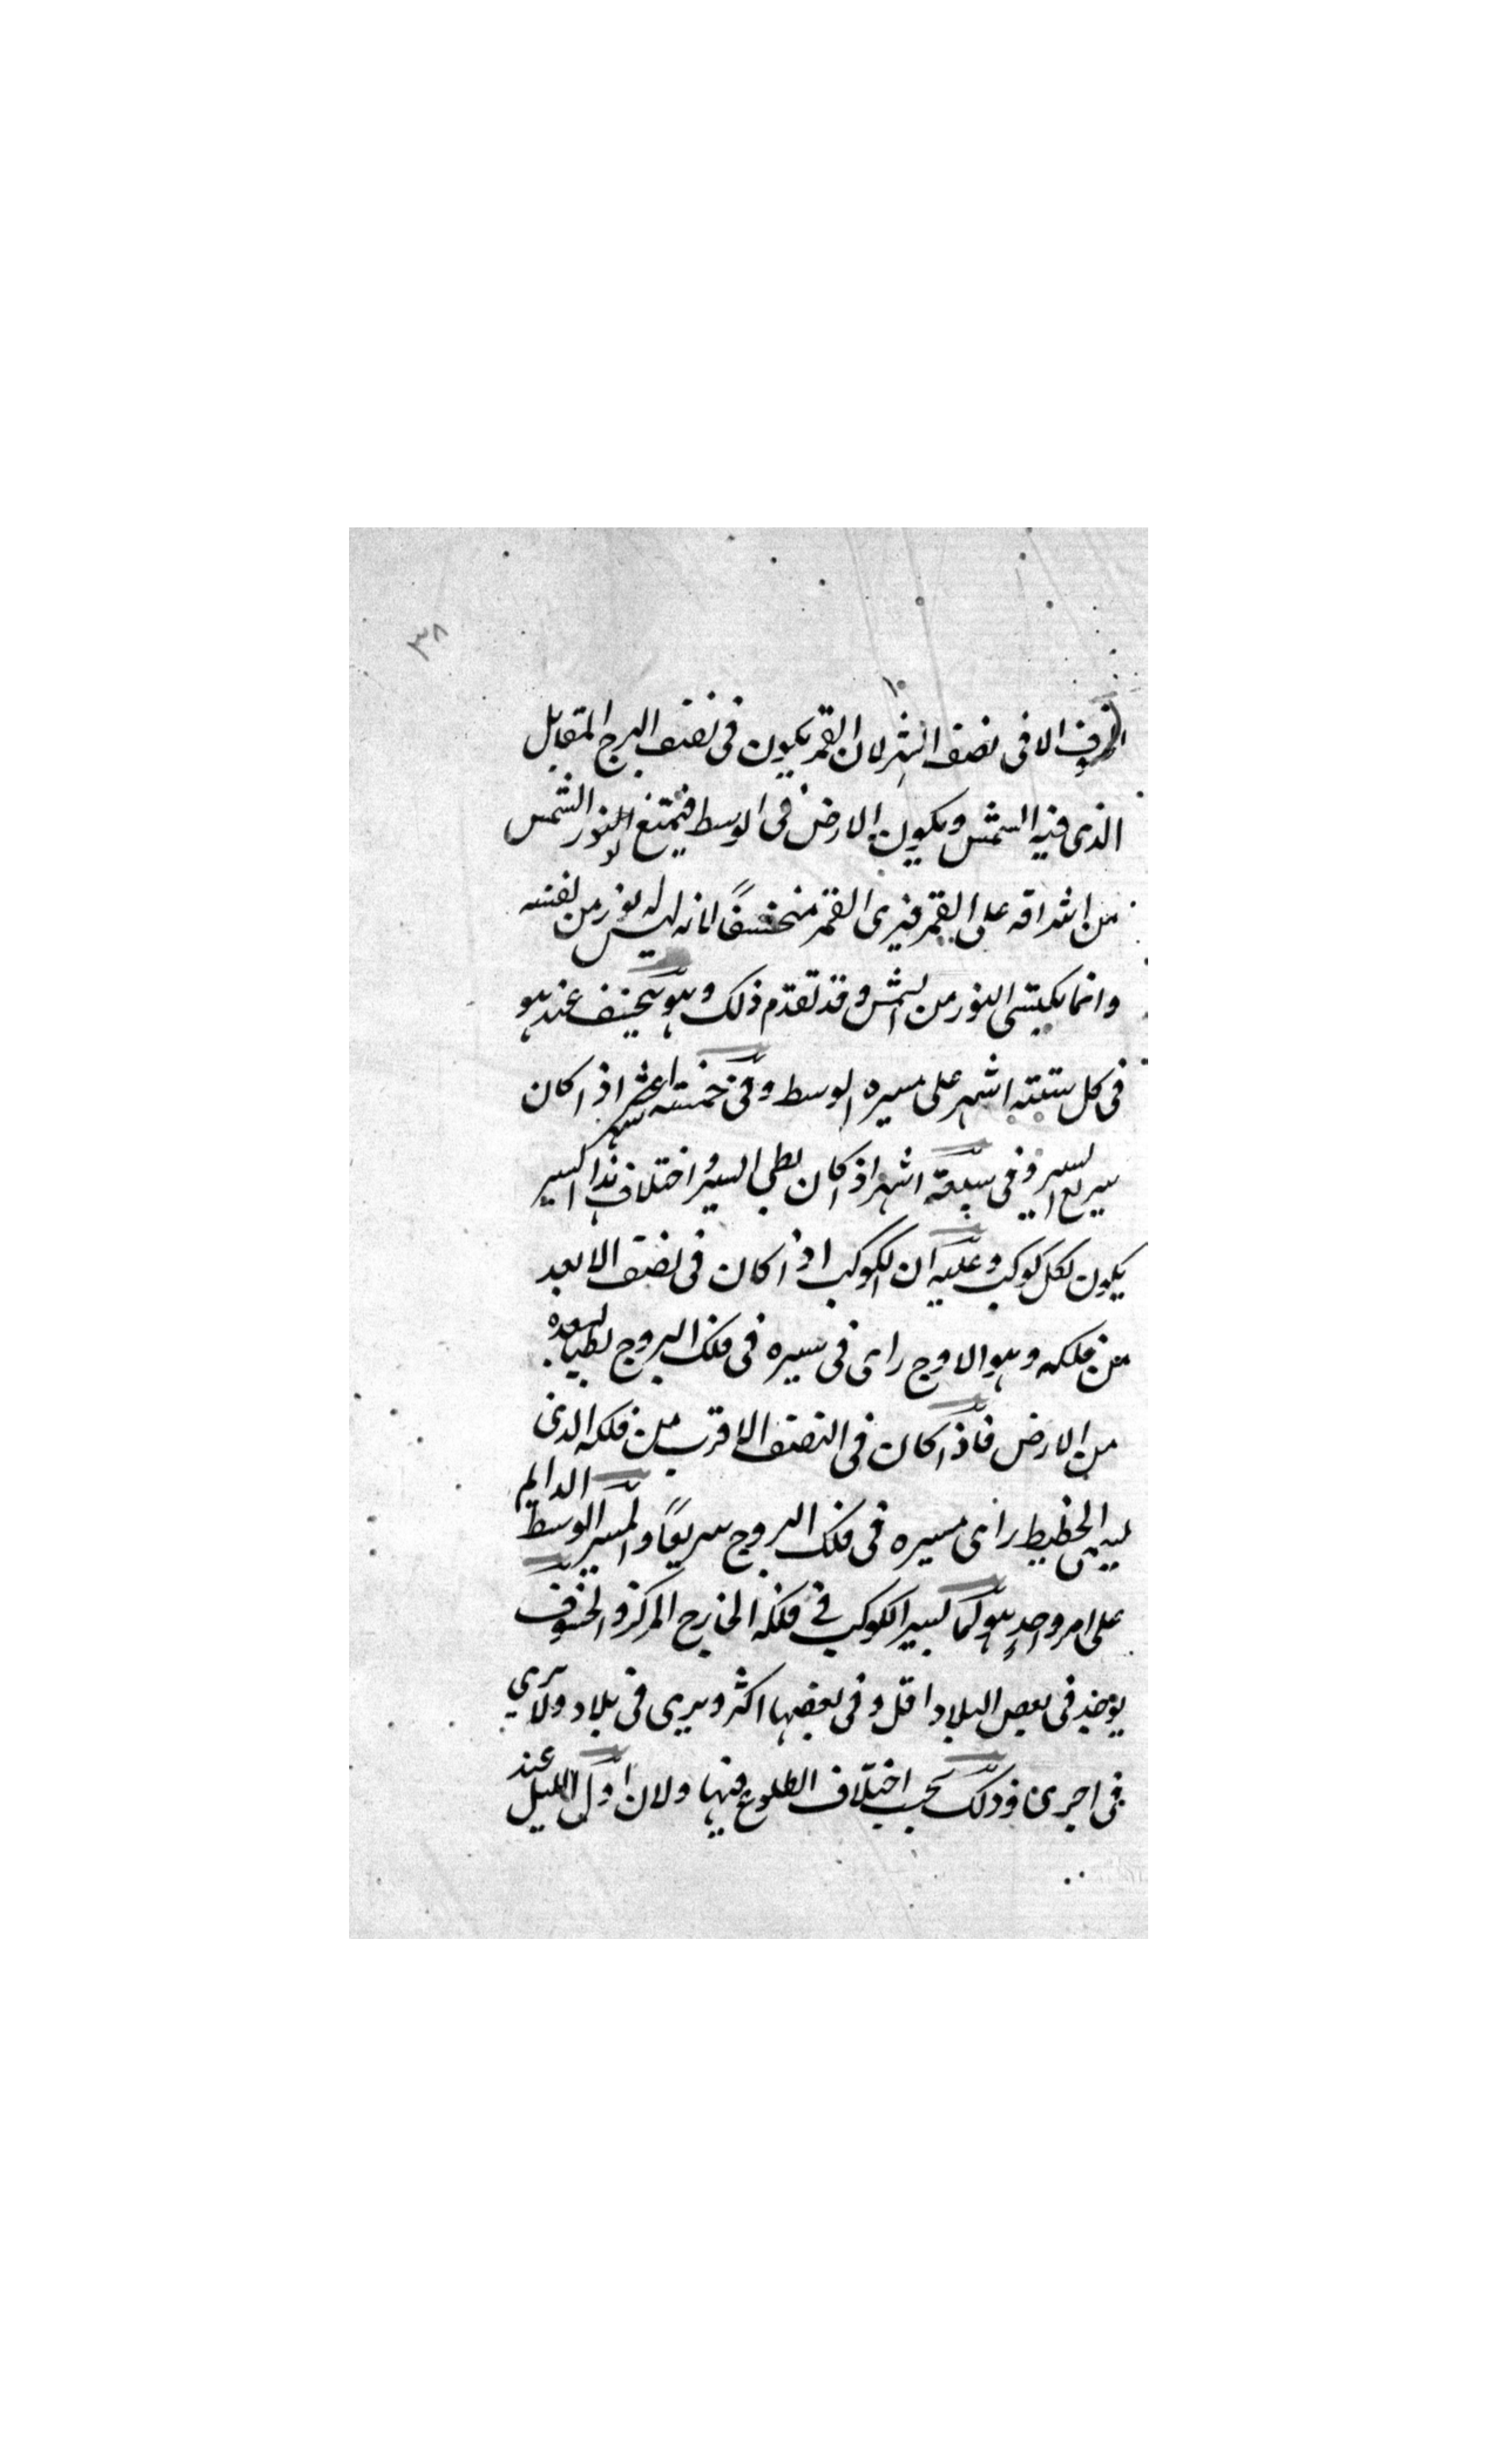 ٣٨
الا فى نصف الشهر لان القمر يكون فى نصف البرج المقابل
الذى فيه الشمس ويكون الارض فى الوسط فيمتنع النور الشمس
من اشراقه على القمر فيرى القمر منخسفًا لانه ليس له نور من نفسه
وانما يكتسى النور من الشمس وقد تقدم ذلك وهو ينخسف عند هو
فى كل ستة اشهر على مسيره الوسط وفى خمسة اشهر اذا كان
سريع السير وفى سبعة اشهر اذا كان بطى السير واختلاف هذا السير
يكون لكل كوكب وعليه ان الكوكب اذا كان فى نصف الابعد
من فلكه وهو الاوج راى فى سيره فى فلك البروج بطيا لبعده
من الارض فاذا كان فى النصف الاقرب من فلكه الذى
يسمى الحظيط راى مسيره فى فلك البروج سريعًا والمسير الوسط الدايم
على امر واحدٍ هو كما يسير الكوكب فى فلكه الخارج المركز والخسوف
يوخذ فى بعض البلاد اقل وفى بعضها اكثر ويرى فى بلاد ولا يرى
فى اخرى وذلك بحسب اختلاف الطلوع فيها ولان اول الليل عند